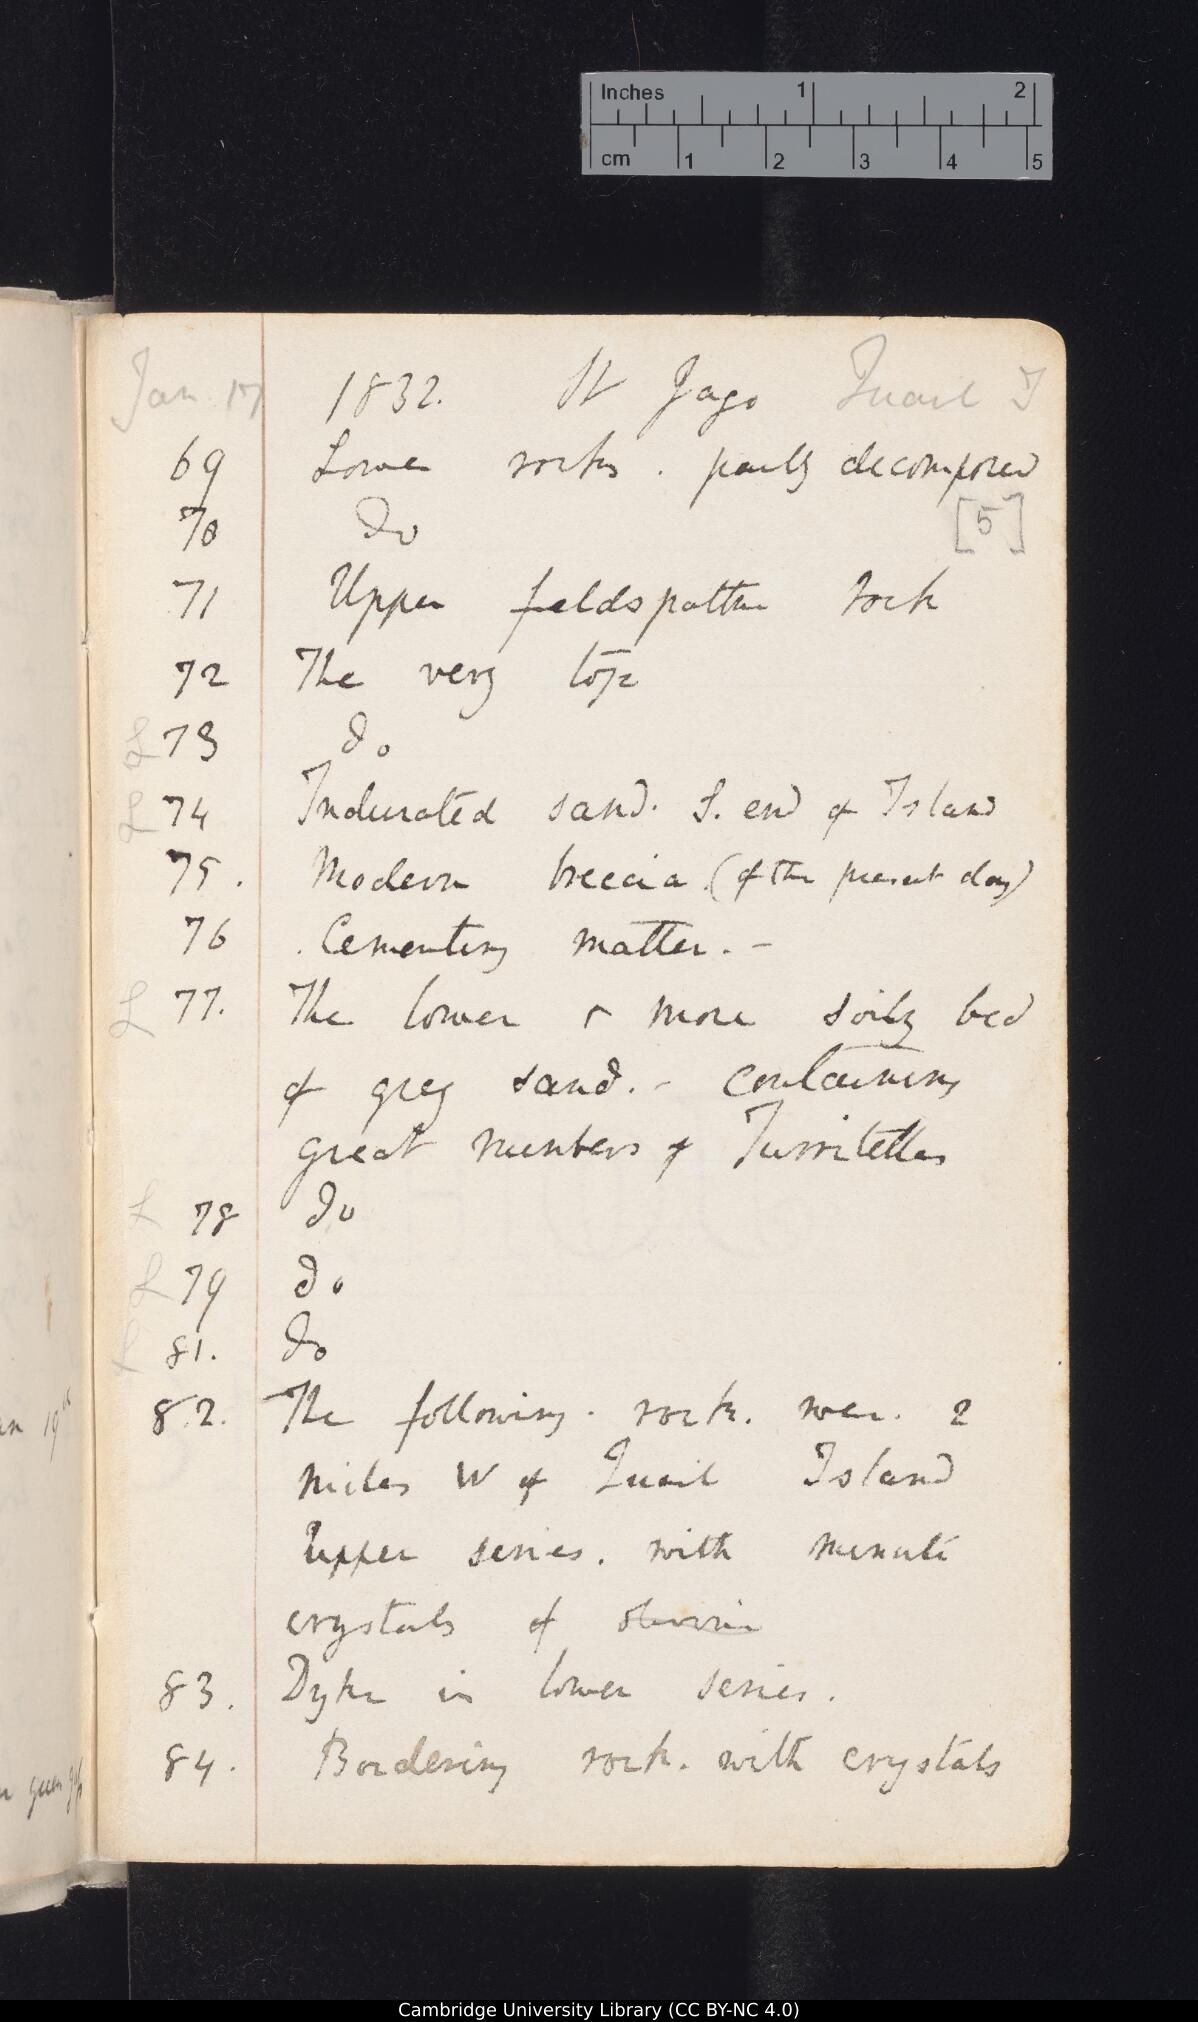 Inches 1 2
cm 1 2 3 4 5
Jan 17 1832. St Jago Quail I
69 Lower rocks. partly decomposed
70 Do
[5]
71 Upper feldspathic rock
72 The very top
L 73 do
L 74 Indurated sand. S. end of Island
75. Modern breccia (of the present day)
76 . Cementing matter. –
L 77. The lower & more soily bed
of grey sand. – containing
great numbers of Turritellas
L 78 do
L 79 do
L 81. do
82. The following. rock. were. 2
miles W of Quail Island
Upper series. with minute
crystals of olivine
83. Dyke in lower series.
84. Bordering rock. with crystals
19th
green
Cambridge University Library (CC BY-NC 4.0)